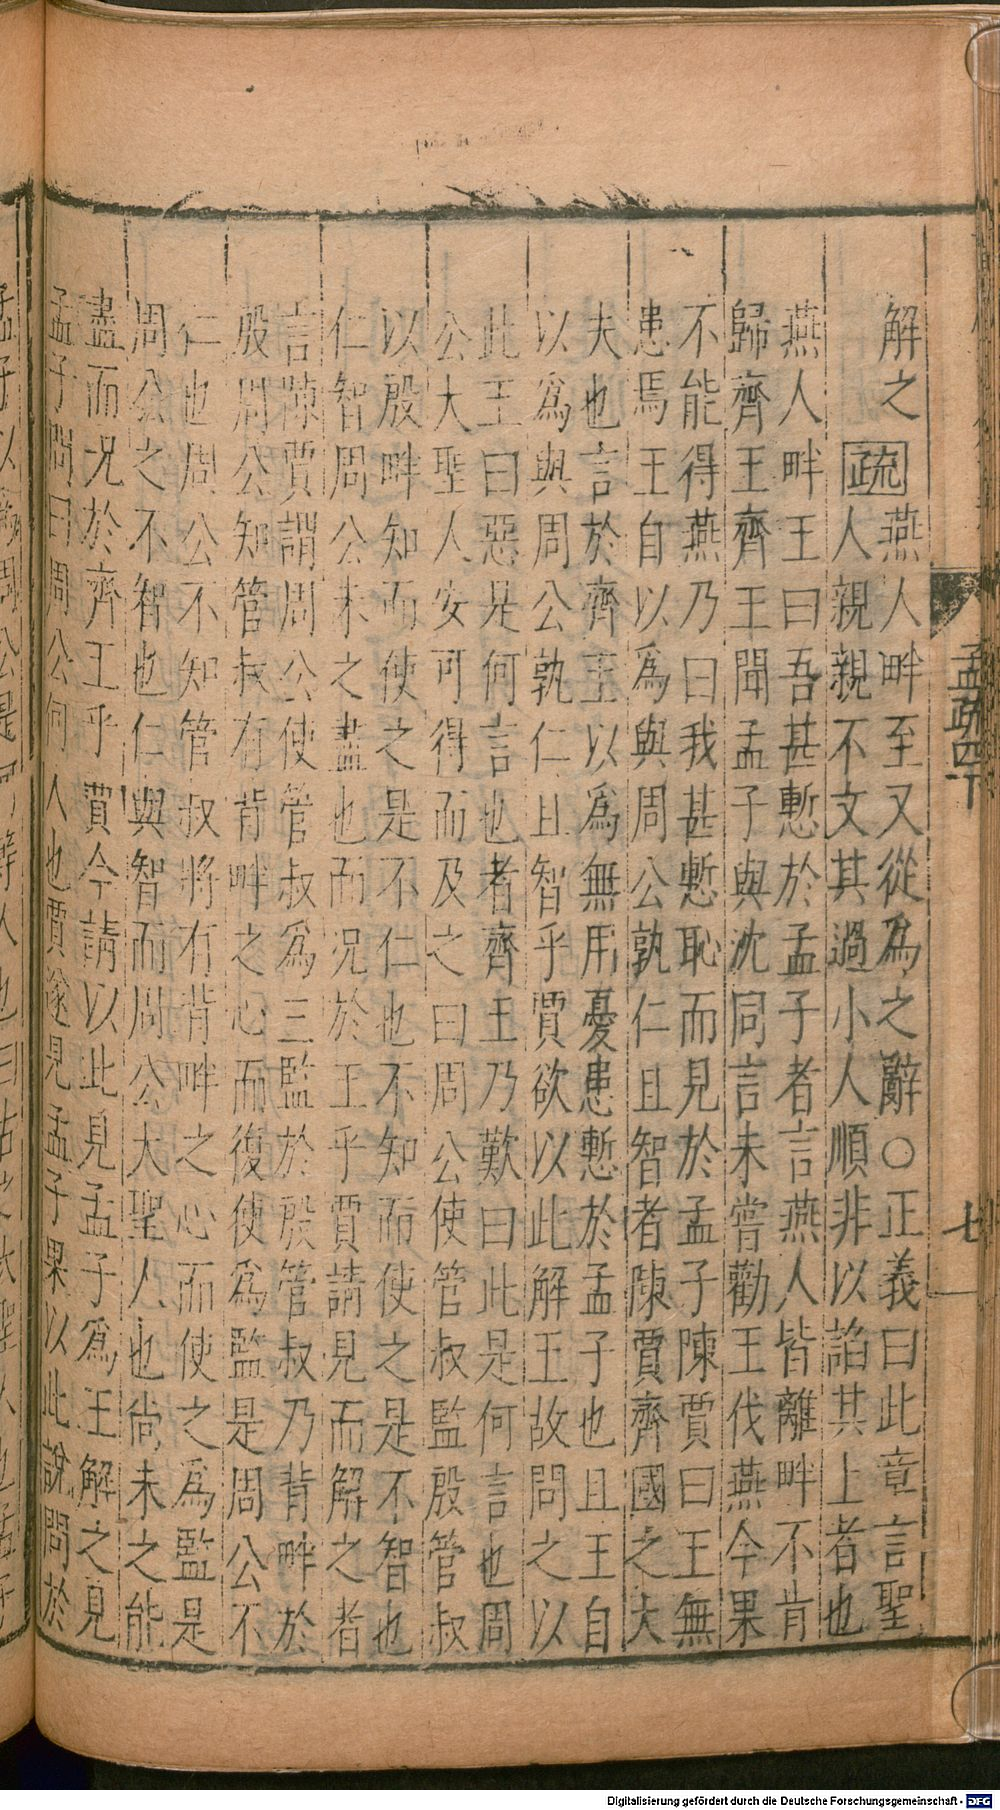 孟疏四下
七
解之 疏 燕人畔至又從爲之辭○正義曰此章言聖
人親親不文其過小人順非以諂其上者也
燕人畔王曰吾甚慙於孟子者言燕人皆離畔不肯
歸齊王齊王聞孟子與沈同言未嘗勸王伐燕今果
不能得燕乃曰我甚慙恥而見於孟子陳賈曰王無
患焉王自以爲與周公孰仁且智者陳賈齊國之大
夫也言於齊王以爲無用憂患慙於孟子也且王自
以爲與周公孰仁且智乎賈欲以此解王故問之以
此王曰惡是何言也者齊王乃歎曰此是何言也周
公大聖人安可得而及之曰周公使管叔監殷管叔
以殷畔知而使之是不仁也不知而使之是不智也
仁智周公未之盡也而況於王乎賈請見而解之者
言陳賈謂周公使管叔爲三監於殷管叔乃背畔於
殷周公知管叔有背畔之心而復使爲監是周公不
仁也周公不知管叔將有背畔之心而使之爲監是
周公之不智也仁與智而周公大聖人也尚未之能
盡而況於齊王乎賈今請以此見孟子爲王解之見
孟子問曰周公何人也賈遂見孟子果以此說問於
Digitalisierung gefördert durch die Deutsche Forschungsgemeinschaft - DFG